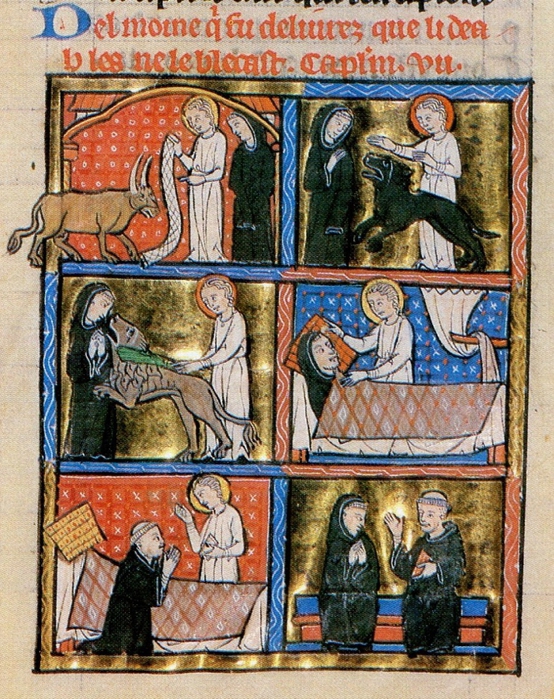 Del moine q̄ fu deliurez que li dea
bles ne le blecast. Capl'm. vii.